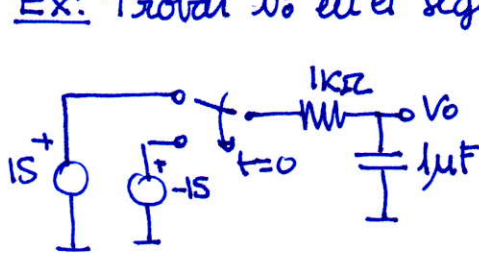 Ex: Trobar Vo en el seg
1KΩ
Vo
+
15
+
-15
t=0
1μF